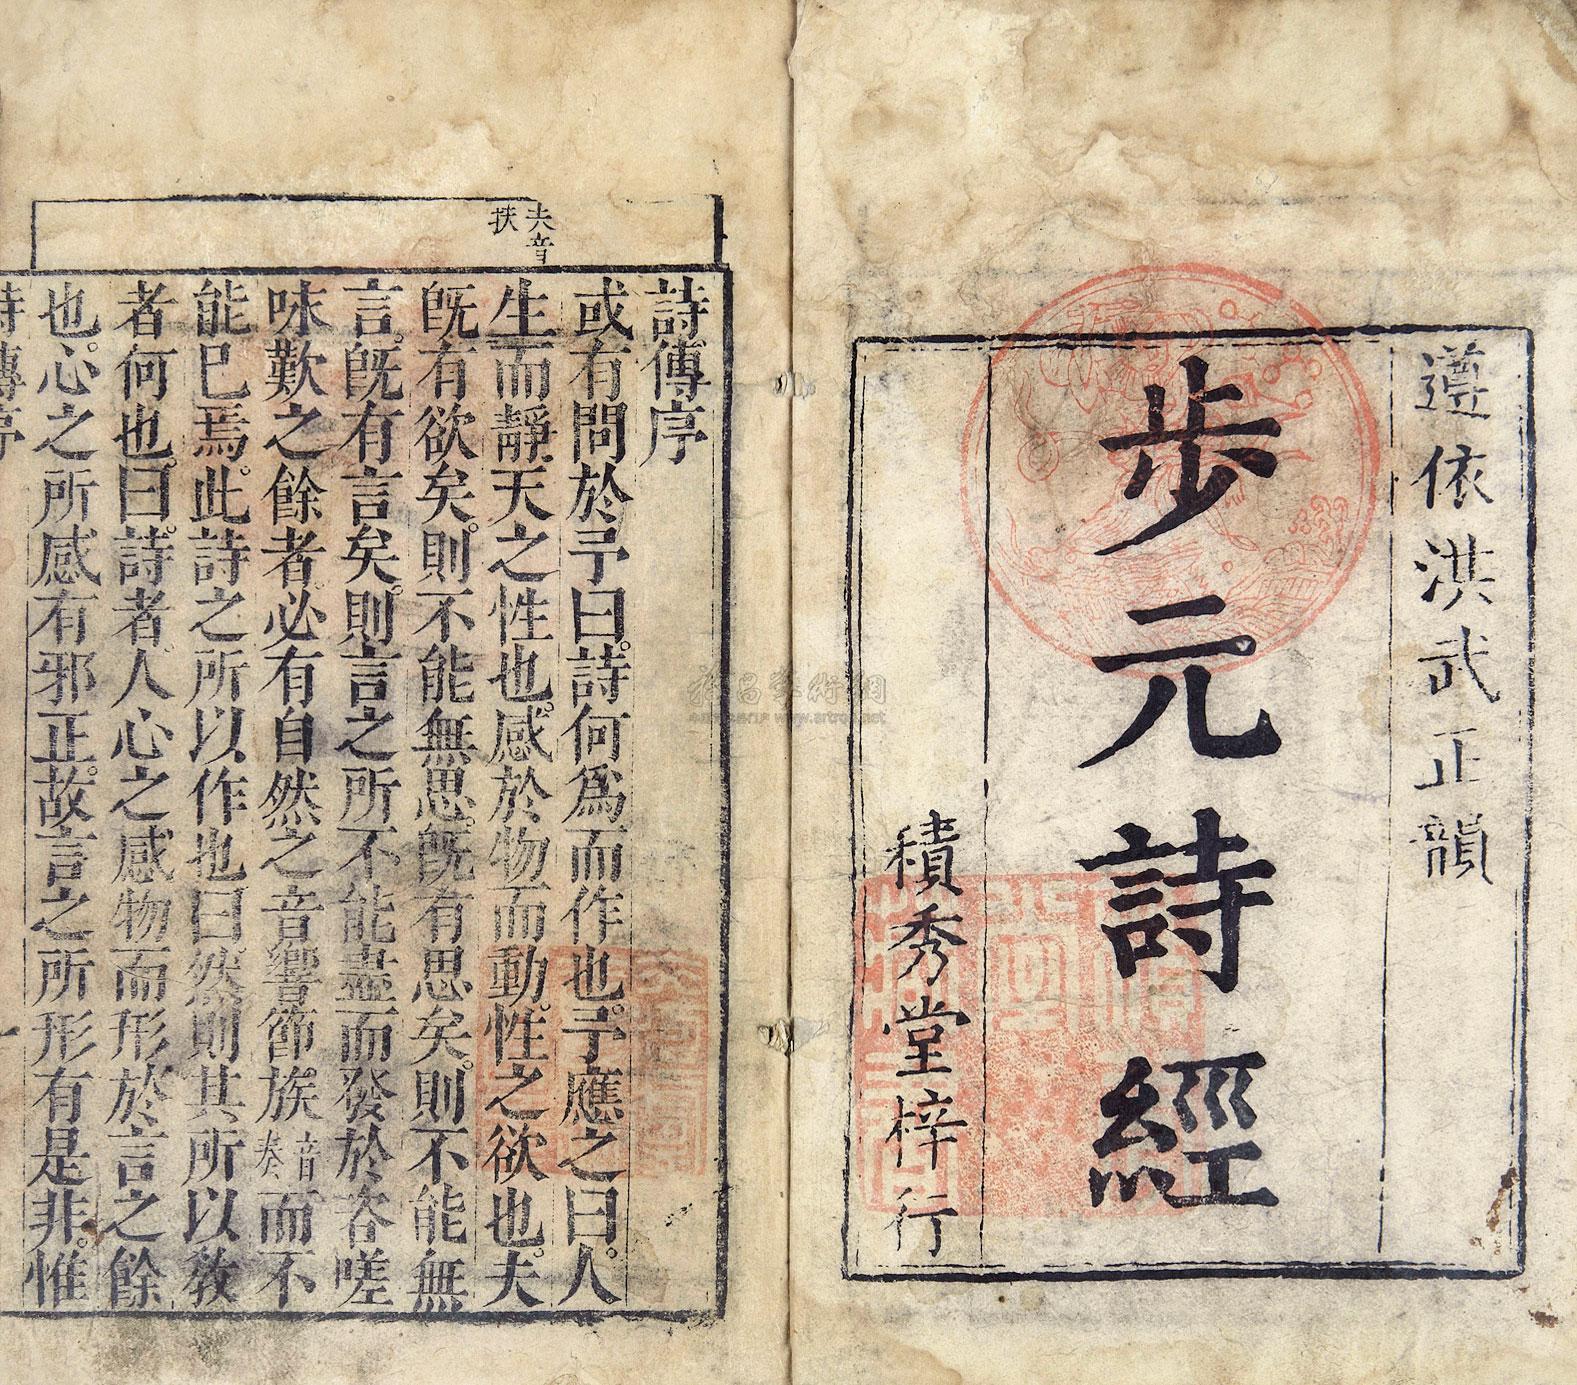 遵依洪武正韻
步元詩經
積秀堂梓行
夫音
扶
詩傳序
或有問於予曰詩何爲而作也予應之曰人
生而靜天之性也感於物而動性之欲也夫
旣有欲矣則不能無思旣有思矣則不能無
言旣有言矣則言之所不能盡而發於咨嗟
味歎之餘者必有自然之音響節族音奏而不
能已焉此詩之所以作也曰然則其所以敎
者何也曰詩者人心之感物而形於言之餘
也心之所感有邪正故言之所形有是非惟
詩傳序
www.artron.net